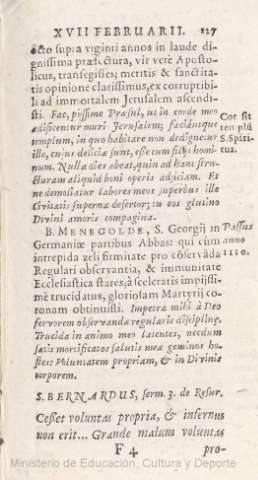 XVII FEBRUARII. 127
octo supra viginti annos in laude di-
gnissima præfectura, vir verè Aposto-
licus, transegisses; meritis & sanctita-
tis opinione clarissimus, ex corruptibi-
li ad immortalem Jerusalem ascendi-
sti. Fac, piissime Præsul, ut in corde meo
ædificentur muri Jerusalem; faciásque
templum, in quo habitare non dedignetur
ille, cujus deliciæ sunt, esse cum filijs homi-
num. Nulla dies abeat, quin ad hanc stru-
cturam aliquid boni operis adjiciam. Et
ne demoliatur labores meos superbus ille
Civitatis supernæ desertor; tu eos glutino
Divini amoris compagina.
Cor sit
templū
S. Spiri-
tus.
B. MENEGOLDE, S. Georgij in
Germaniæ partibus Abbas: qui cùm
intrepida zeli firmitate pro cōservādà
Regulari observantia, & immunitate
Ecclesiastica stares; à sceleratis impijssi-
mè trucidatus, gloriosam Martyrij co-
ronam obtinuisti. Impetra mihi à Deo
fervorem observandæ regularis disciplinę.
Trucida in animo meo latentes, necdum
satis mortificatos salutis meæ geminos ho-
stes: Voluntatem propriam, & in Divinis
torporem.
Passus
anno
1110.
S. BERNARDUS, serm. 3. de Resur.
Cesset voluntas propria, & infernus
non erit... Grande malum voluntas
F 4 pro-
Ministerio de Educación, Cultura y Deporte